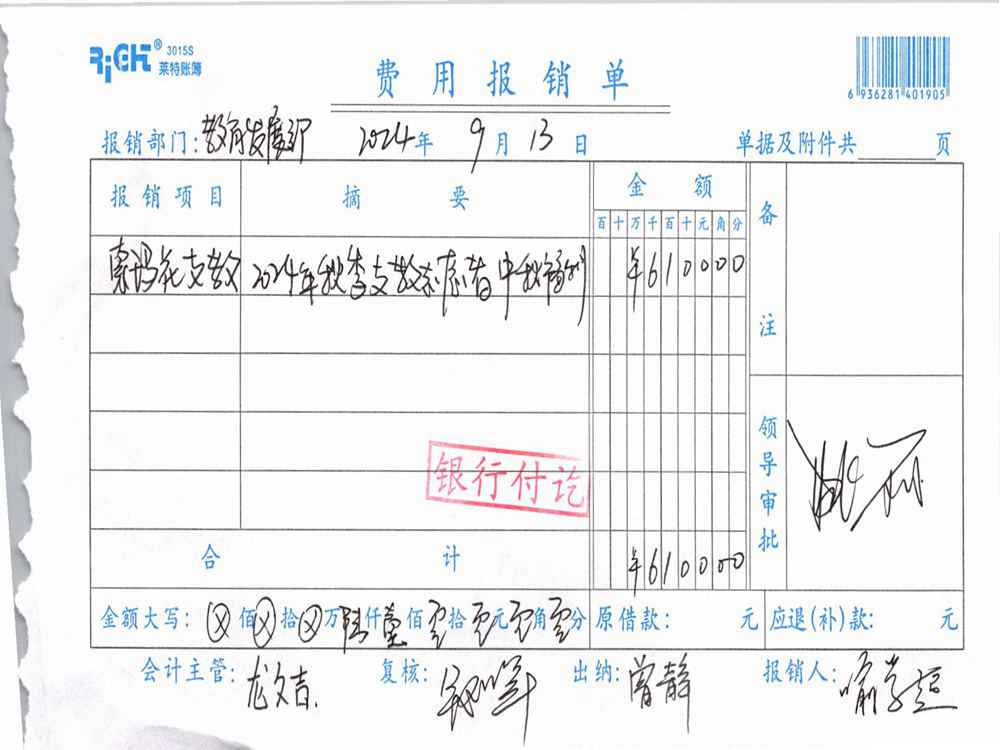 RiCHT® 3015S
莱特账簿
费用报销单
6 936281 401905
报销部门: 教育发展部 2024年 9月 13日 单据及附件共 页
报销项目 摘要 金额 备注
百 十 万 千 百 十 元 角 分
索玛花支教 2024年秋季支教志愿者中秋福利 ¥610000
银行付讫
领导审批
合计 ¥610000
金额大写: ⊗佰⊗拾⊗万陆仟壹佰零拾零元零角零分 原借款: 元 应退(补)款: 元
会计主管: 龙文吉 复核: 出纳: 曾静 报销人: 喻学恒